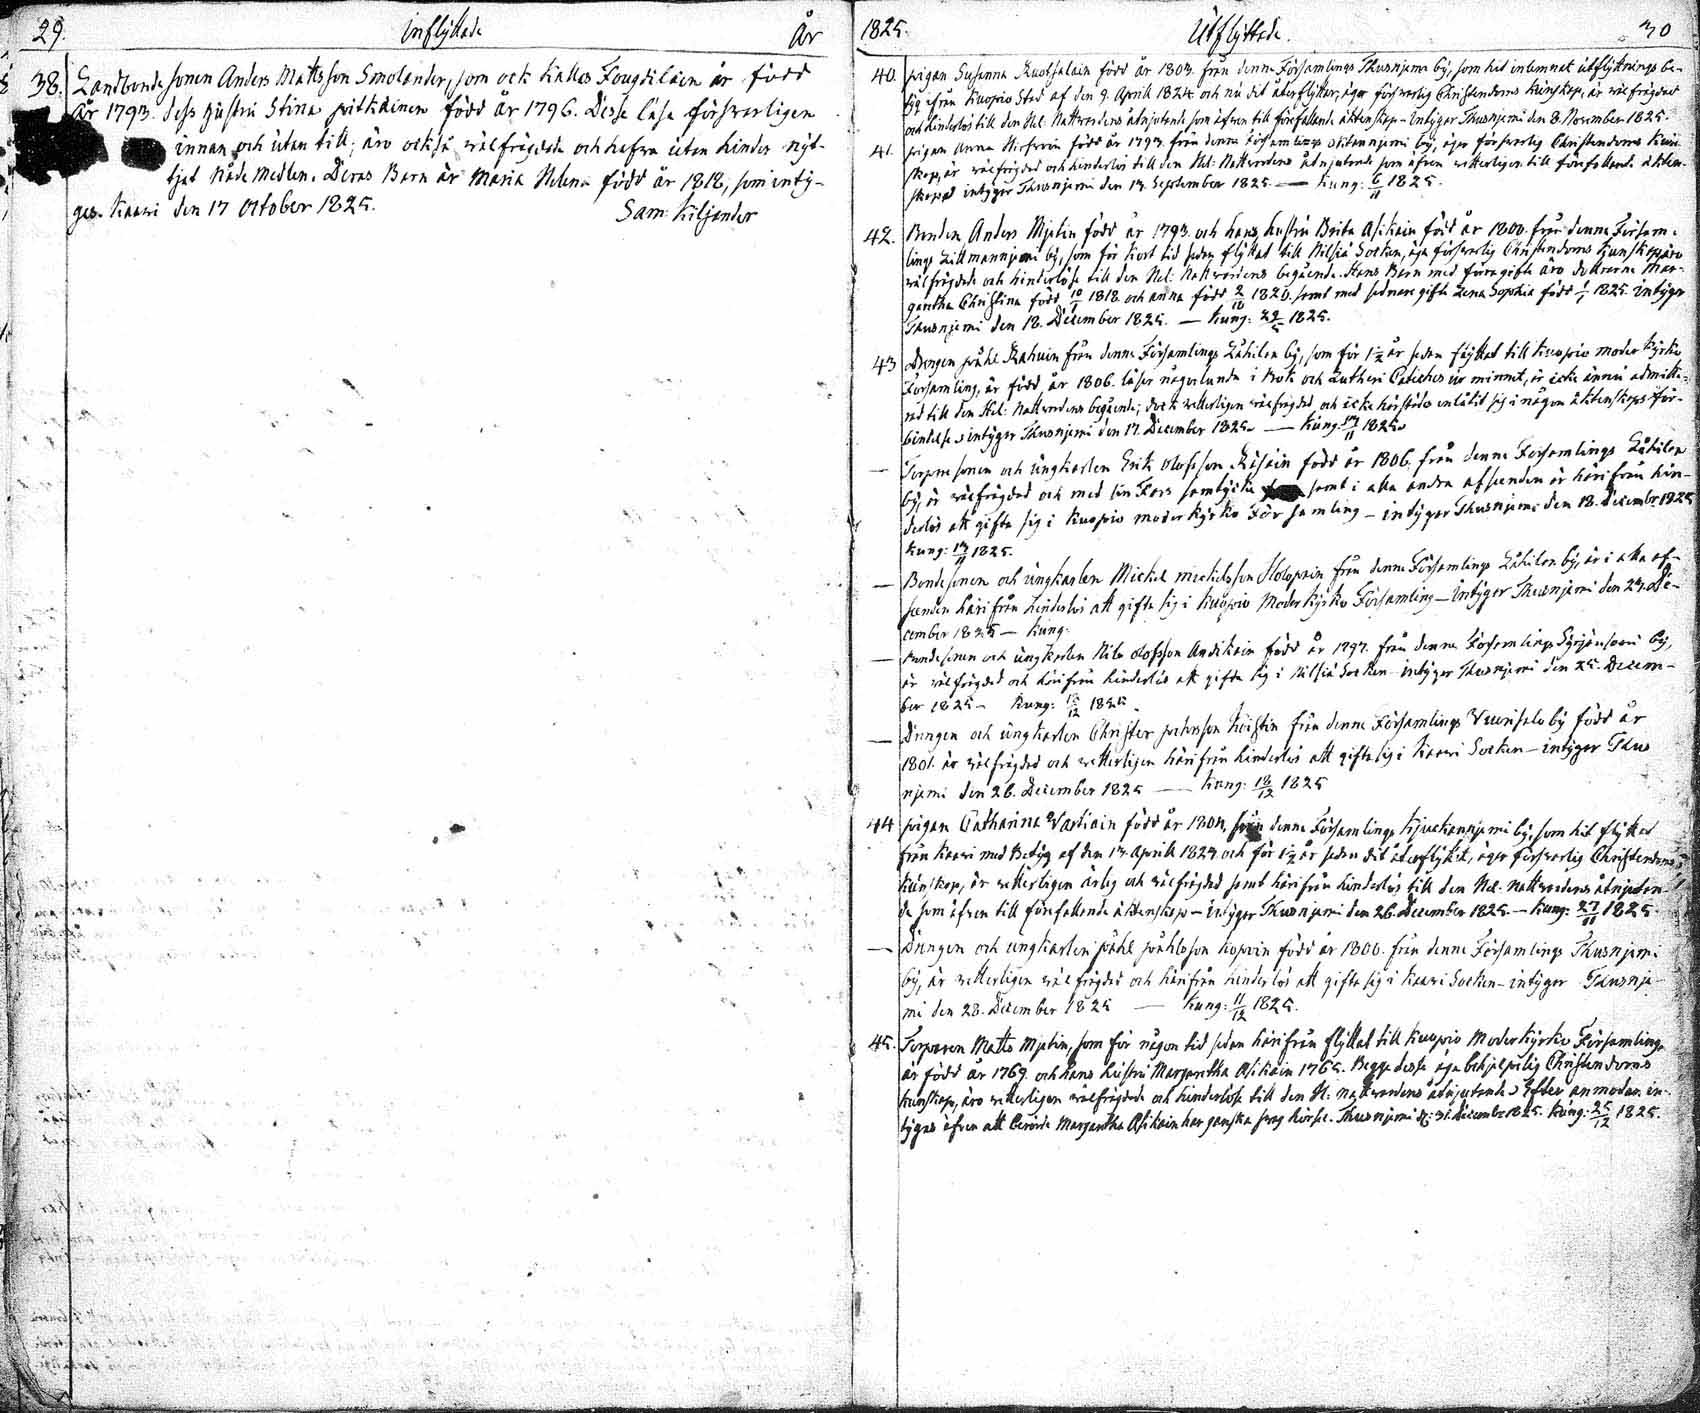 29. Inflyttade År
38. Landbonde sonen Anders Mattsson Smolander, som ock kallas Fougdilain är född
År 1793. dess hustru Stina pitkäinen född år 1796. Desse läsa försvarligen
innan och utan till; äro ock så välfrägdade och hafva utan hinder nyt-
tjat Nåde medlen. Deras Barn är Maria Helena född år 1818, som inty-
gas. Kaavi den 17 October 1825. Sam: Kiljander
1825. Utflyttade. 30
40. pigan Susanna Ruotsalain född år 1803. från denne Församlings Thusnjemi by, som hit inlemnat utflyttnings be-
tyg ifrån Kuopio Stad af den 9. Aprill 1824 och nu dit återflyttar; äger försvarlig Christendoms kunskap, är välfrägdad
och hinderlös till den Hel. Nattvardens åtnjutande som äfven till förefallande äktenskap - Intygar Thusnjemi den 8. November 1825.
41. pigan Anna född år 1793. från denne Församlings by, äger försvarlig Christendoms kun-
skap, är välfrägdad och hinderlös till den Hel: Nattvardens åtnjutande som äfven vetterligen till förefallande äkten-
skap intygar Thusnjemi den 13. September 1825. — Kung: 6/11 1825.
42. Bonden Anders Mjetin född år 1793. och hans hustru Brita Asikain född år 1800. från denne Försam-
lings by, som för kort tid sedan flyttat till Nilsiä Socken, äga försvarlig Christendoms kunskap, äro
välfrägdade och hinderlöse till den Hel: Nattvardens begående. Hans Barn med förra giftet äro döttrarne Mar-
garetha Christina född 1818. och Anna född 1820. samt med sednare giftet Lena Sophia född 1825. intygar
Thusnjemi den 18. December 1825. — Kung: 1825.
43. Drengen påhl Rahuin från denne Församlings Lukilan by, som för 1½ år sedan flyttat till Kuopio moder kyrko
Församling, är född år 1806. läser någorlunda i Bok och Lutheri Catches ur minnet, är icke ännu admitte-
rad till den Hel: Nattvardens begående; dock vetterligen välfrägdad och icke härstädes inlåtit sig i någon äktenskaps för-
bindelse intygar Thusnjemi den 17. December 1825. — Kung: 1825.
— Torpare sonen och ungkarlen Erik Olofsson Räsäin född år 1806. från denne Församlings Lukilan
by, är välfrägdad och med sin Fars samtycke samt i alla andra afseenden är härifrån hin-
derlös att gifta sig i Kuopio moderkyrko Församling - intygar Thusnjemi den 18. December 1825
Kung: 1825.
— Bondesonen och ungkarlen Mickel Mickelsson Holopain från denne Församlings Lukilan by, är i alla af-
seenden härifrån hinderlös att gifta sig i Kuopio Moderkyrko Församling — Intygar Thusnjemi den 23. De-
cember 1825 — Kung:
— Bondesonen och ungkarlen Nils Olofsson Andikain född år 1797. från denne Församlings by,
är välfrägdad och härifrån hinderlös att gifta sig i Nilsiä Socken - intygar Thusnjemi den 25. Decem-
ber 1825 - Kung: 1825.
— Drengen och ungkarlen Christer från denne Församlings by född år
1801. är välfrägdad och vetterligen härifrån hinderlös att gifta sig i Kaavi Socken - intygar Thus
njemi den 26. December 1825 — Kung: 18/12 1825
44 pigan Catharina Vartiain född år från denne Församlings by, som hit flyttat
från Kaavi med Betyg af den 13. Aprill och för 1½ år sedan dit återflyttat, äger försvarlig Christendoms
kunskap, är vetterligen ärlig och välfrägdad samt härifrån hinderlös till den Hel. nattvardens åtnjutan-
de som äfven till förefallande äktenskap - intygar Thusnjemi den 26. December 1825. — Kung: 27/11 1825.
— Drengen och ungkarlen påhl påhlsson född år 1800. från denne Församlings Thusnjemi
by, är vetterligen välfrägdad och härifrån hinderlös att gifta sig i Kaavi Socken - intygar Thusnje-
mi den 28. December 1825 — Kung: 11/12 1825.
45. Torparen Matts Mjetin, som för någon tid sedan härifrån flyttat till Kuopio Moderkyrko Församling
är född år 1769. och hans hustru Margaretha Asikain 1765. Begge desse äga behjelpelig Christendoms
kunskap, äro vetterligen välfrägdade och hinderlöse till den H: nattvardens åtnjutande. Efter anmodan in-
tygas äfven att berörde Margaretha Asikain har ganska svag hörsel. Thusnjemi d: 31. December 1825. Kung: 25/12 1825.